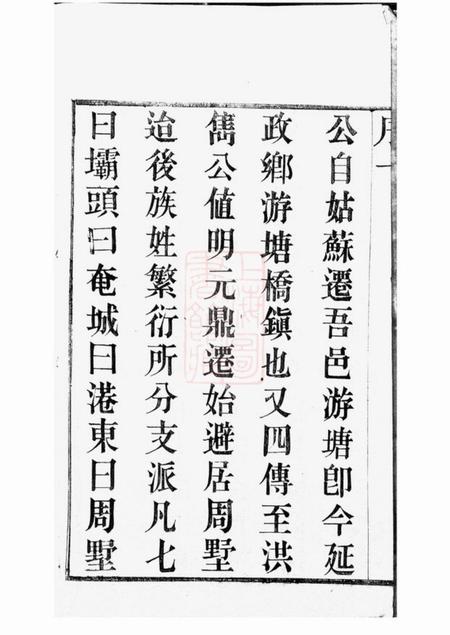 序一
公自姑蘇遷吾邑游塘卽今延
政鄉游塘橋鎭也又四傳至洪
雋公值明元鼎遷始避居周墅
迨後族姓繁衍所分支派凡七
曰壩頭曰奄城曰港東曰周墅